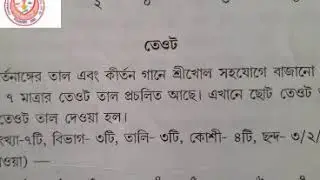 ২
তেওট
র্তনাঙ্গের তাল এবং কীর্তন গানে শ্রীখোল সহযোগে বাজানো
৭ মাত্রার তেওট তাল প্রচলিত আছে। এখানে ছোট তেওট
তেওট তাল দেওয়া হল।
ংখ্যা-৭টি, বিভাগ- ৩টি, তালি- ৩টি, কোশী- ৪টি, ছন্দ- ৩/২/
াওয়া) —